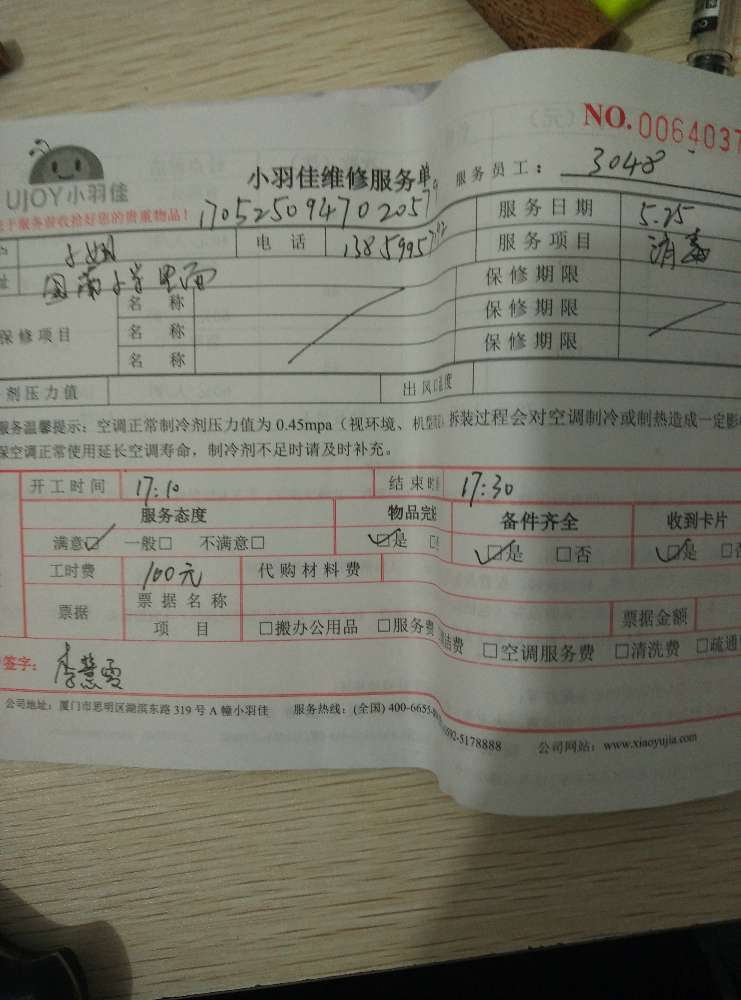 NO.0064037
UJOY小羽佳
小羽佳维修服务单 服务员工：3048
服务验收拾好您的贵重物品！
服务日期 5.25
电话 服务项目 消毒
保修期限
名称
保修期限
保修项目 名称
保修期限
名称
剂压力值 出风口温度
服务温馨提示：空调正常制冷剂压力值为 0.45mpa（视环境、机型而 拆装过程会对空调制冷或制热造成一定影
保空调正常使用延长空调寿命，制冷剂不足时请及时补充。
开工时间 17:10 结束时 17:30
服务态度 物品完 备件齐全 收到卡片
满意☑ 一般□ 不满意□ ☑是 ☑是 □否 ☑是 □否
工时费 100元 代购材料费
票据 票据名称 票据金额
项目 □搬办公用品 □服务费 洁费 □空调服务费 □清洗费 □疏通
签字：李慧雯
公司地址：厦门市思明区湖滨东路 319 号 A 幢小羽佳 服务热线：(全国) 400-6655- 592-5178888 公司网站：www.xiaoyujia.com